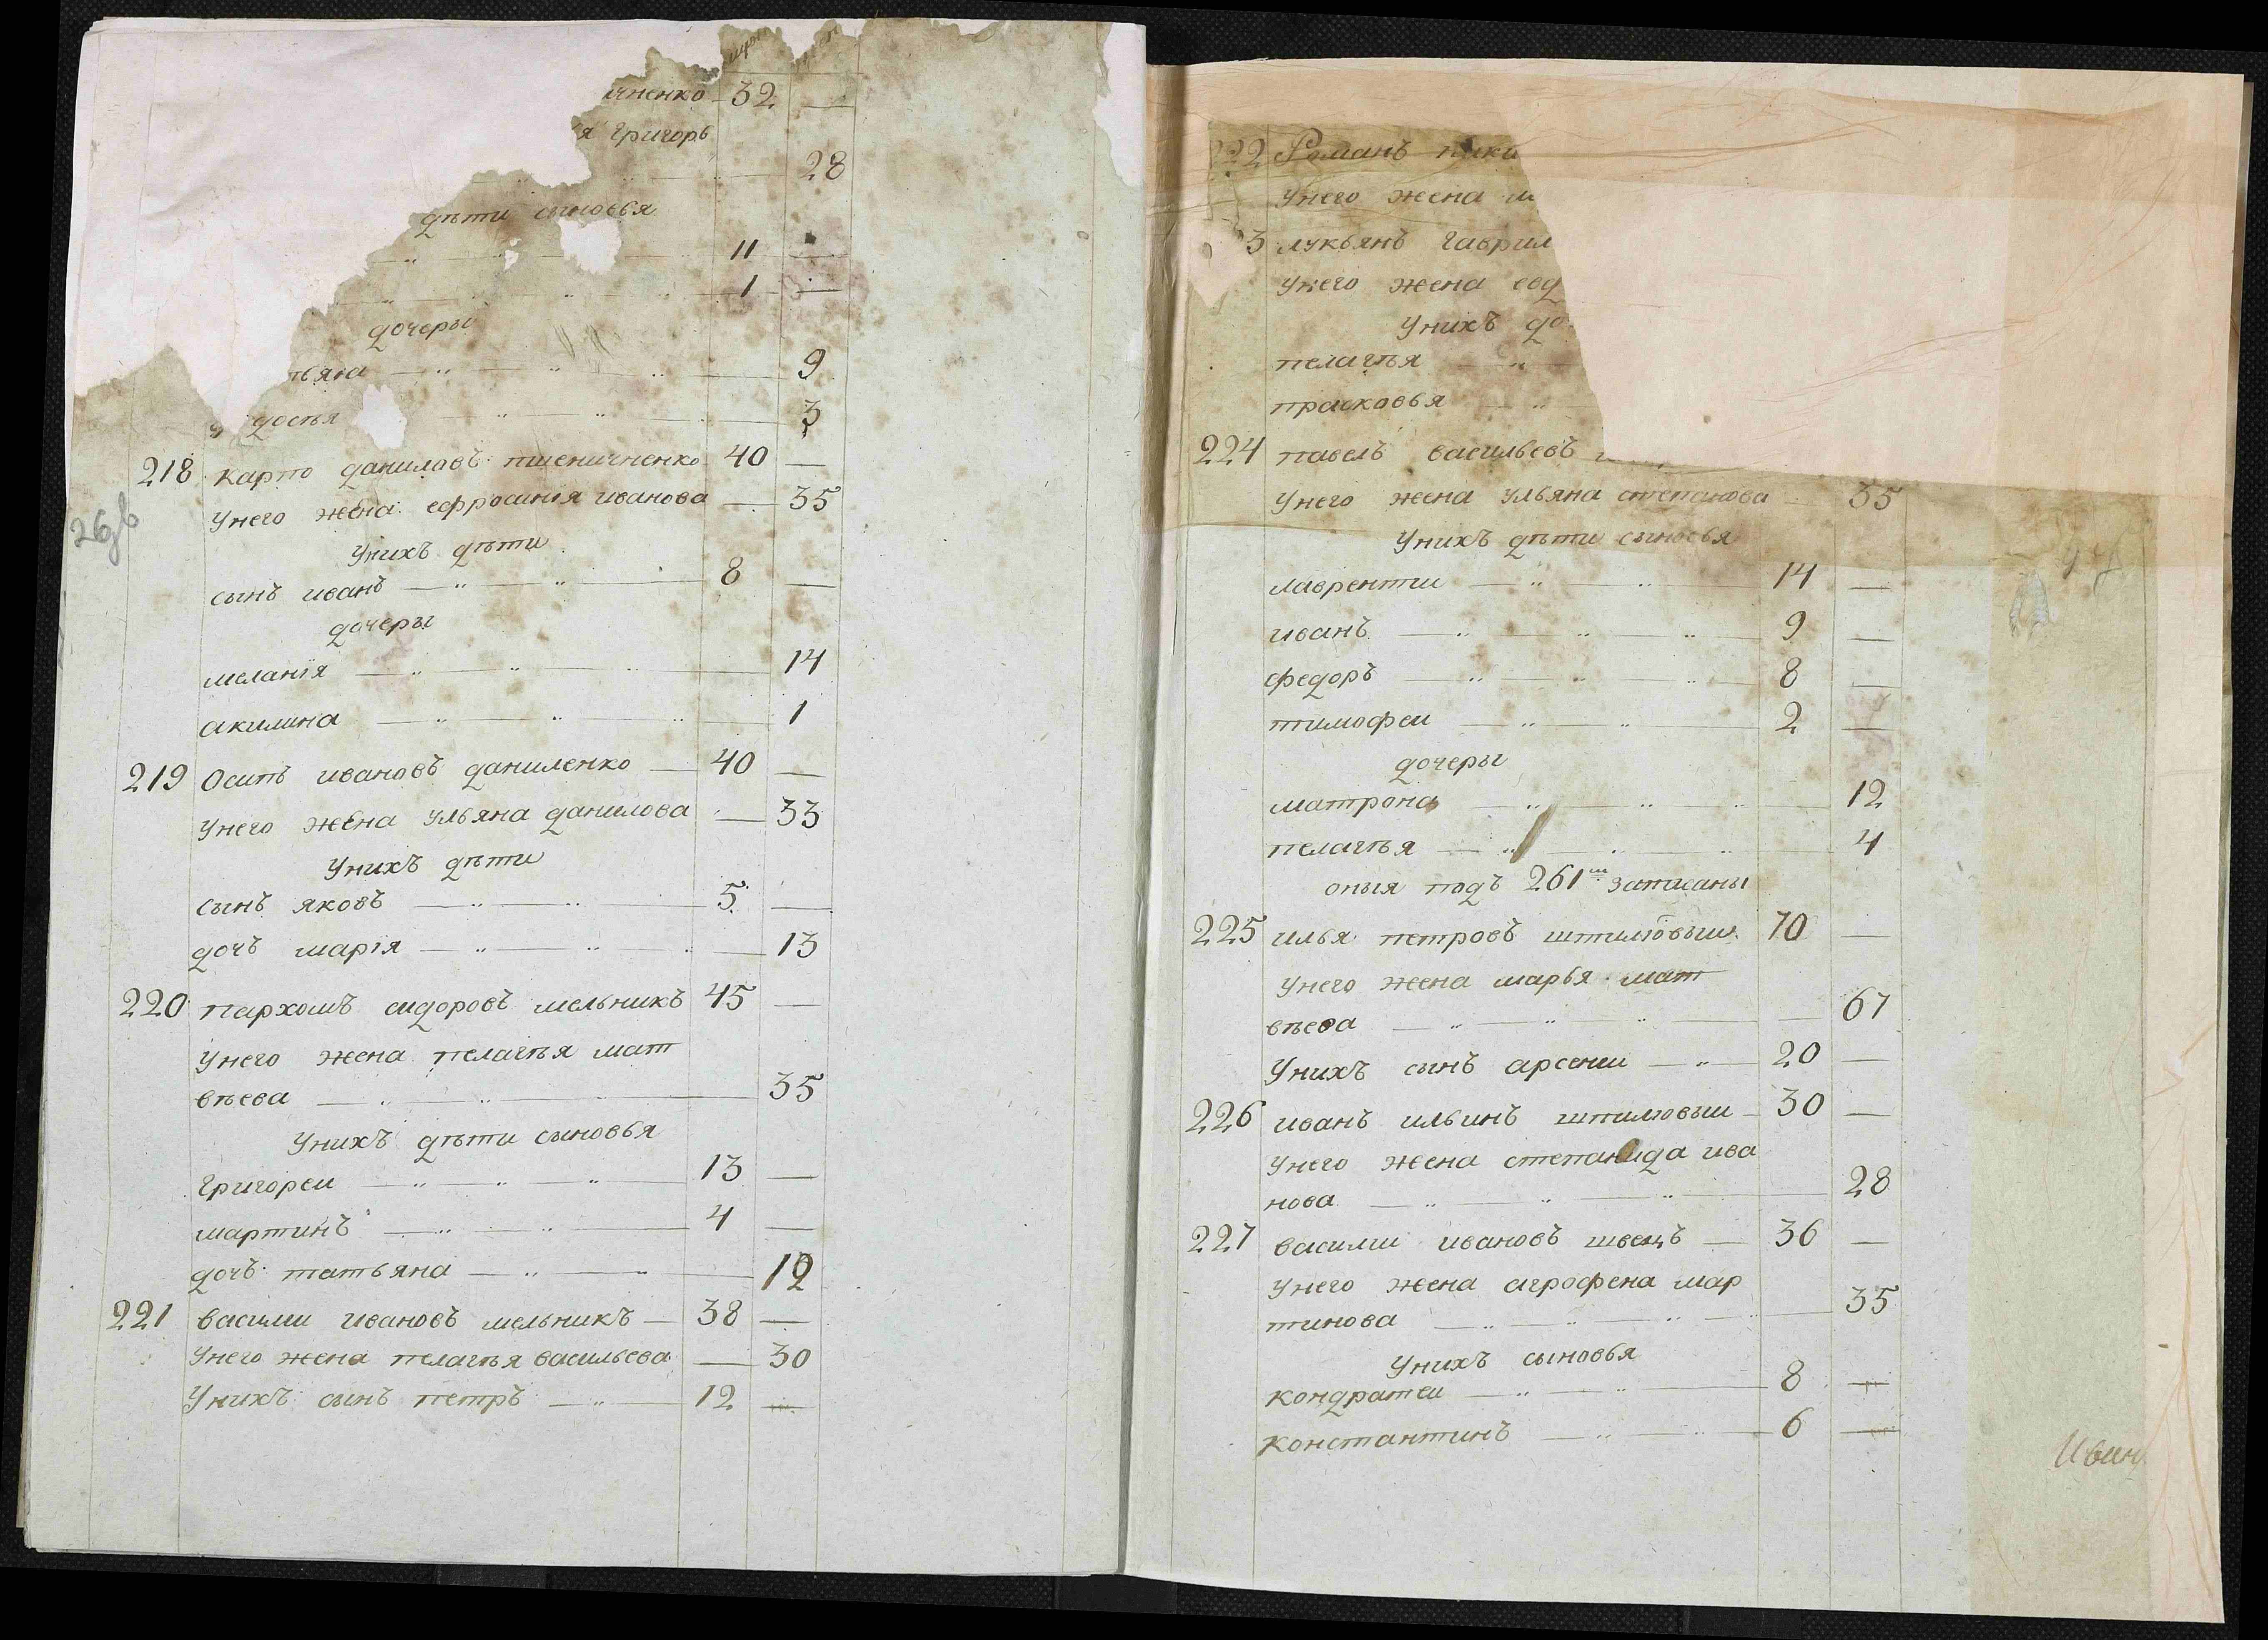 32
я Григорь
28
дѣти сыновья
11
1
дочеры
9
3
218 карпо даниловъ пшениченко 40
Унего жена ефросинія иванова 35
Унихъ дѣти
сынъ иванъ 8
дочеры
меланія 14
акилина 1
219 Осипъ ивановъ даниленко 40
Унего жена ульяна данилова 33
Унихъ дѣти
сынъ яковъ 5
дочъ марія 13
220 пархомъ сидоровъ мельникъ 45
Унего жена пелагѣя мат
вѣева 35
Унихъ дѣти сыновья
Григореи 13
мартинъ 4
дочъ татьяна 12
221 василии ивановъ мельникъ 38
Унего жена пелагѣя васильева 30
Унихъ сынъ петръ 12
222 Романъ
Унего жена
3 лукьянъ Гаврил
Унего жена евд
Унихъ до
пелагѣя
прасковья
224 павелъ васильевъ
Унего жена ульяна степанова 35
Унихъ дѣти сыновья
лаврентии 14
иванъ 9
федоръ 8
тимофеи 2
дочеры
матрона 12
пелагѣя 4
оныя подъ 261 записаны
225 илья петровъ шпилювыи 70
Унего жена марья мат
вѣева 67
Унихъ сынъ арсении 20
226 иванъ ильинъ шпилювыи 30
Унего жена степанида ива
нова 28
227 василии ивановъ швецъ 36
Унего жена агрофена мар
тинова 35
Унихъ сыновья
кондратеи 8
константинъ 6